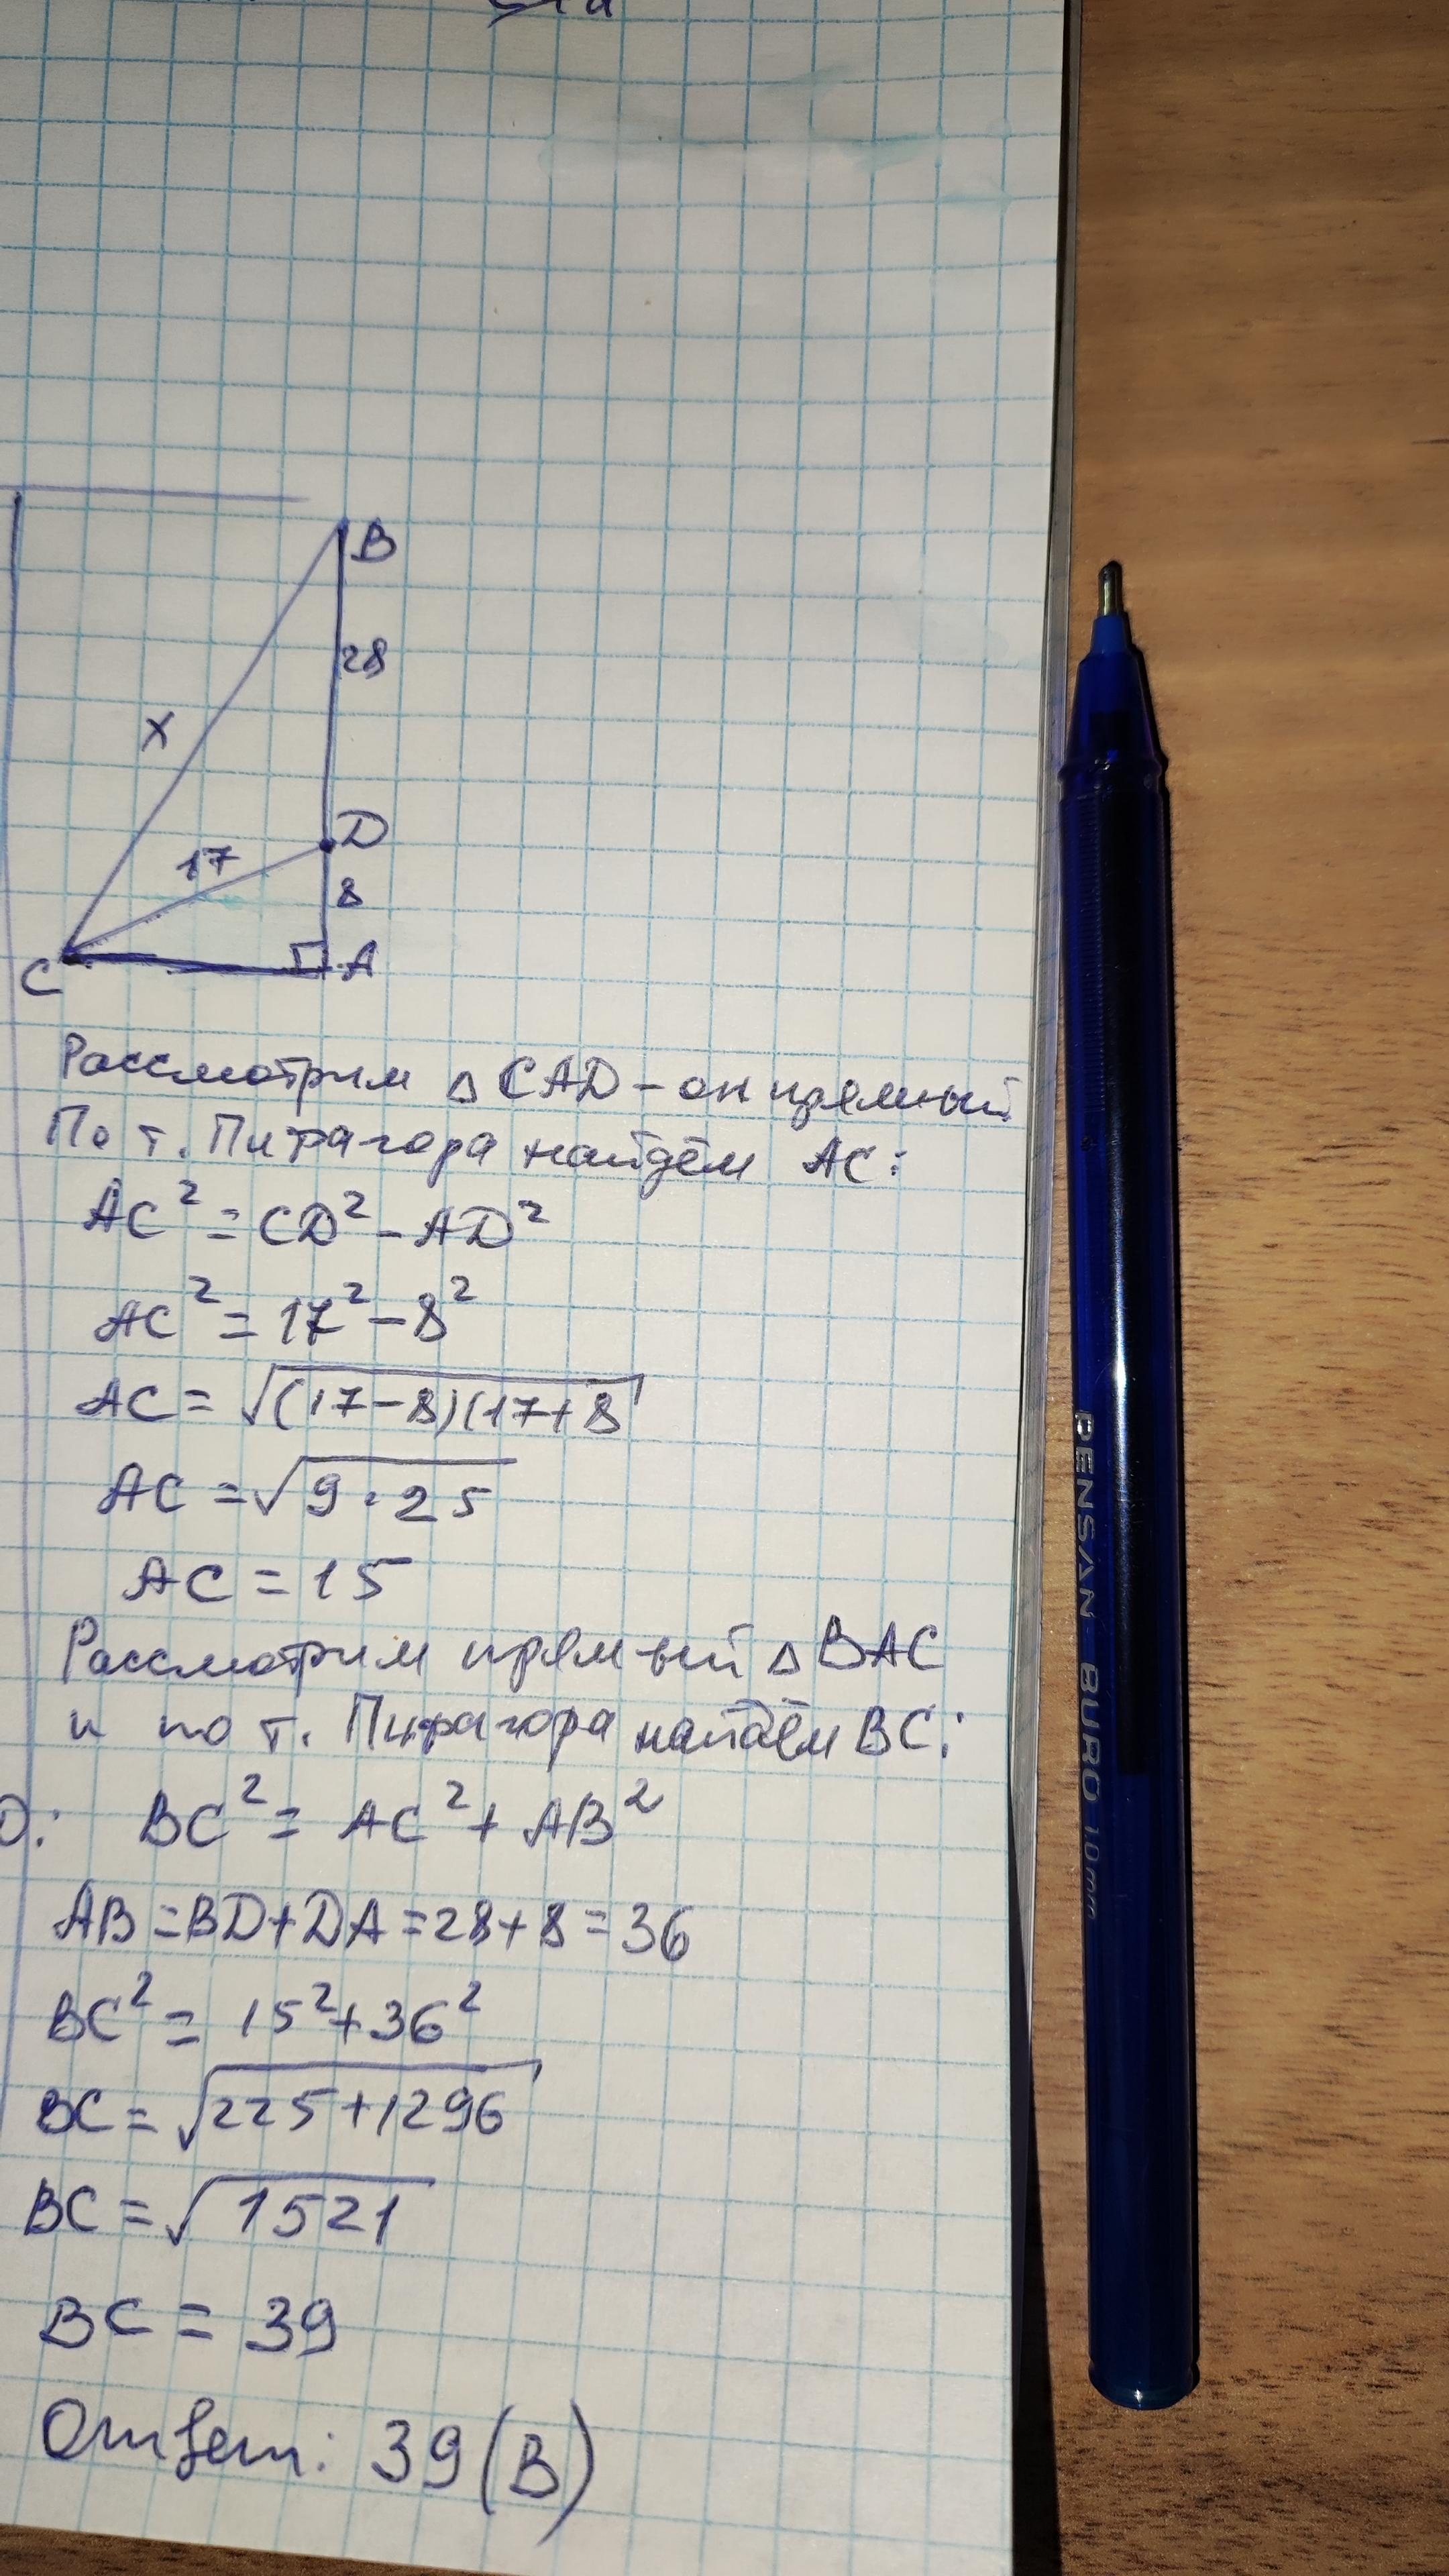 B
28
X
D
17
8
C
A
Рассмотрим △ CAD - он прямный
По т. Пифагора найдём AC:
AC² = CD² - AD²
AC² = 17² - 8²
AC = √(17-8)(17+8
AC = √9·25
AC = 15
Рассмотрим прямный △ BAC
и по т. Пифагора найдём BC:
BC² = AC² + AB²
AB = BD + DA = 28 + 8 = 36
BC² = 15² + 36²
BC = √225 + 1296
BC = √1521
BC = 39
Ответ: 39 (B)
PENSAN BURO 1.0mm